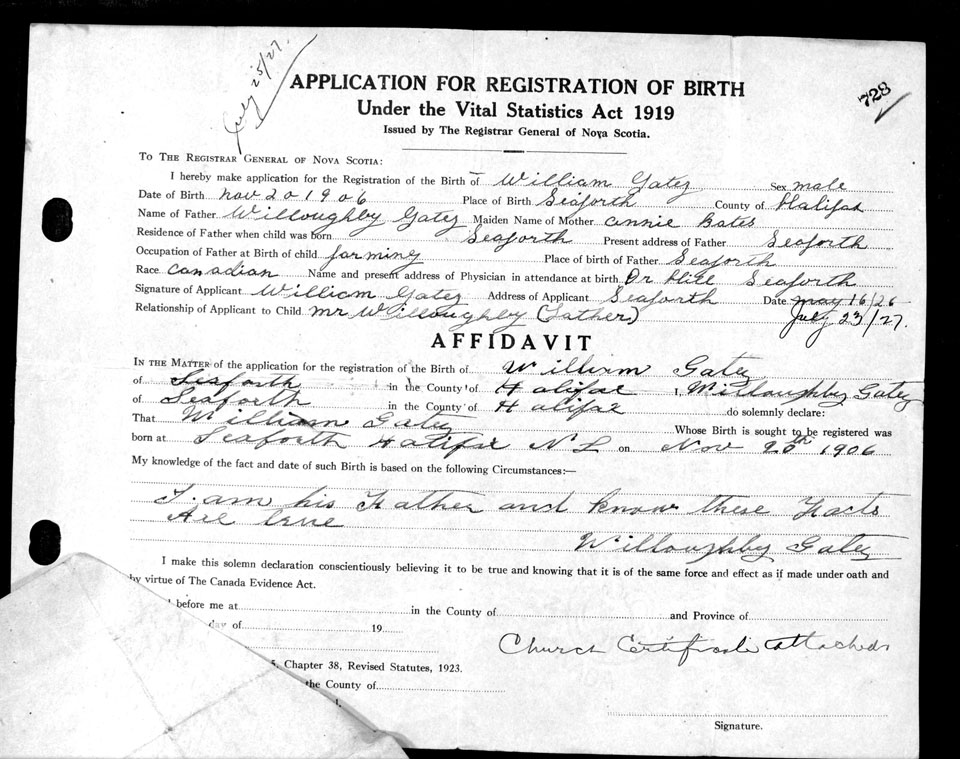 July 25/27.
728
APPLICATION FOR REGISTRATION OF BIRTH
Under the Vital Statistics Act 1919
Issued by The Registrar General of Nova Scotia.
TO THE REGISTRAR GENERAL OF NOVA SCOTIA:
I hereby make application for the Registration of the Birth of William Gatez Sex male
Date of Birth Nov 20 1906 Place of Birth Seaforth County of Halifax
Name of Father Willoughby Gatez Maiden Name of Mother Annie Bates
Residence of Father when child was born Seaforth Present address of Father Seaforth
Occupation of Father at Birth of child farming Place of birth of Father Seaforth
Race Canadian Name and present address of Physician in attendance at birth Dr Hill Seaforth
Signature of Applicant William Gatez Address of Applicant Seaforth Date May 16/26
July 23/27.
Relationship of Applicant to Child Mr Willoughby (Father)
AFFIDAVIT
IN THE MATTER of the application for the registration of the Birth of William Gatez
of Seaforth in the County of Halifax I, Willoughby Gatez
of Seaforth in the County of Halifax do solemnly declare:
That William Gatez Whose Birth is sought to be registered was
born at Seaforth Halifax on Nov 20th 1906
My knowledge of the fact and date of such Birth is based on the following Circumstances:—
I am his Father and know these Facts
Are true
Willoughby Gatez
I make this solemn declaration conscientiously believing it to be true and knowing that it is of the same force and effect as if made under oath and
by virtue of The Canada Evidence Act.
before me at in the County of and Province of
day of 19
Church Certificate attached
Chapter 38, Revised Statutes, 1923.
the County of
Signature.